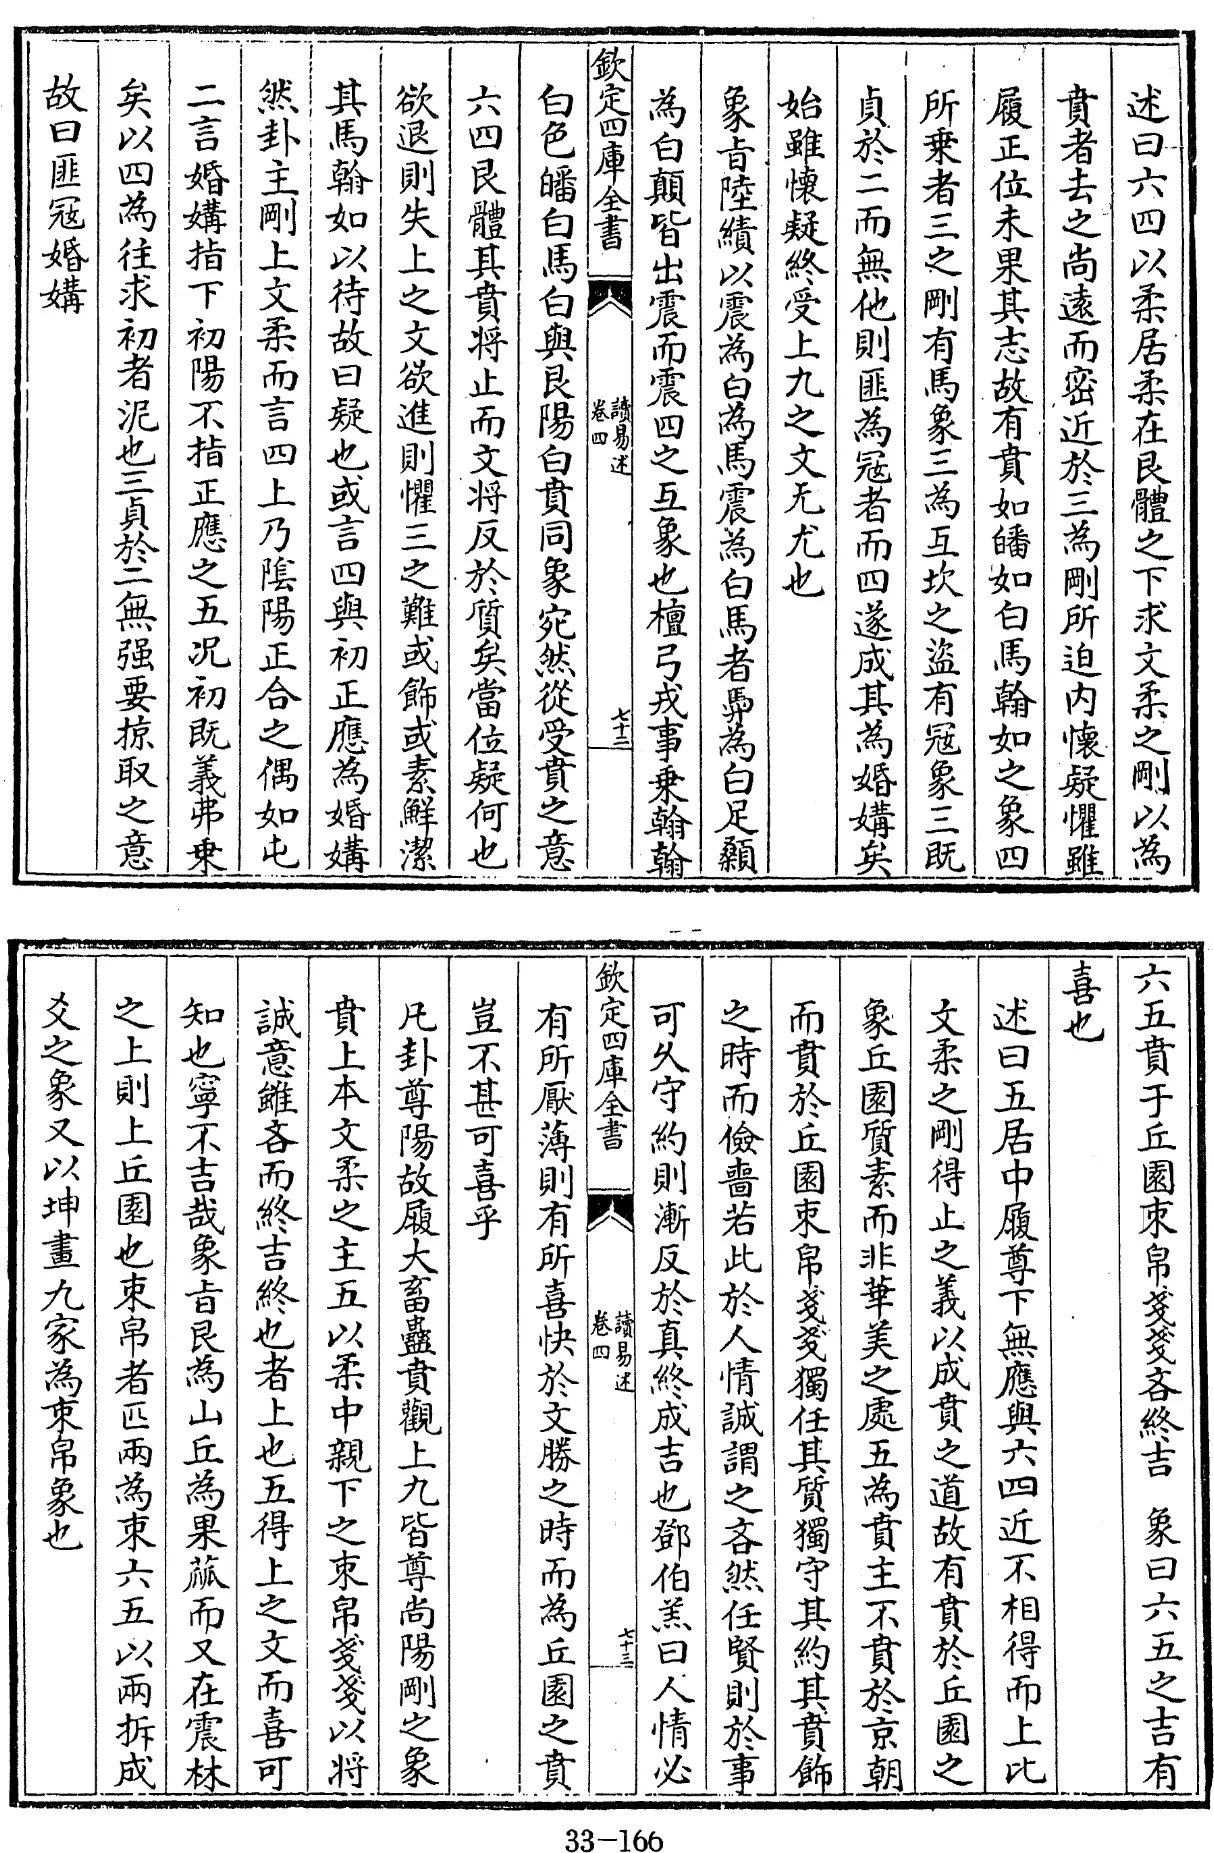 述曰六四以柔居柔在艮體之下求文柔之剛以為
賁者去之尚遠而密近於三為剛所迫内懷疑懼雖
履正位未果其志故有賁如皤如白馬翰如之象四
所乗者三之剛有馬象三為互坎之盜有冦象三既
貞於二而無他則匪為冦者而四遂成其為婚媾矣
始雖懷疑終受上九之文无尤也
象㫖陸績以震為白為馬震為白馬者馵為白足顙
為白顛皆出震而震四之互象也檀弓戎事乗翰翰
欽定四庫全書
讀易述
卷四
七十二
白色皤白馬白與艮陽白賁同象宛然從受賁之意
六四艮體其賁将止而文将反於質矣當位疑何也
欲退則失上之文欲進則懼三之難或飾或素鮮潔
其馬翰如以待故曰疑也或言四與初正應為婚媾
然卦主剛上文柔而言四上乃隂陽正合之偶如屯
二言婚媾指下初陽不指正應之五况初既義弗乗
矣以四為往求初者泥也三貞於二無强要掠取之意
故曰匪冦婚媾
六五賁于丘園束帛戔戔吝終吉　象曰六五之吉有
喜也
述曰五居中履尊下無應與六四近不相得而上比
文柔之剛得止之義以成賁之道故有賁於丘園之
象丘園質素而非華美之處五為賁主不賁於京朝
而賁於丘園束帛戔戔獨任其質獨守其約其賁飾
之時而儉嗇若此於人情誠謂之吝然任賢則於事
可久守約則漸反於真終成吉也鄧伯羔曰人情必
欽定四庫全書
讀易述
卷四
七十三
有所厭薄則有所喜快於文勝之時而為丘園之賁
豈不甚可喜乎
凡卦尊陽故履大畜蠱賁觀上九皆尊尚陽剛之象
賁上本文柔之主五以柔中親下之束帛戔戔以將
誠意雖吝而終吉終也者上也五得上之文而喜可
知也寧不吉哉象㫖艮為山丘為果蓏而又在震林
之上則上丘園也束帛者匹兩為束六五以兩拆成
爻之象又以坤畫九家為束帛象也
33-166